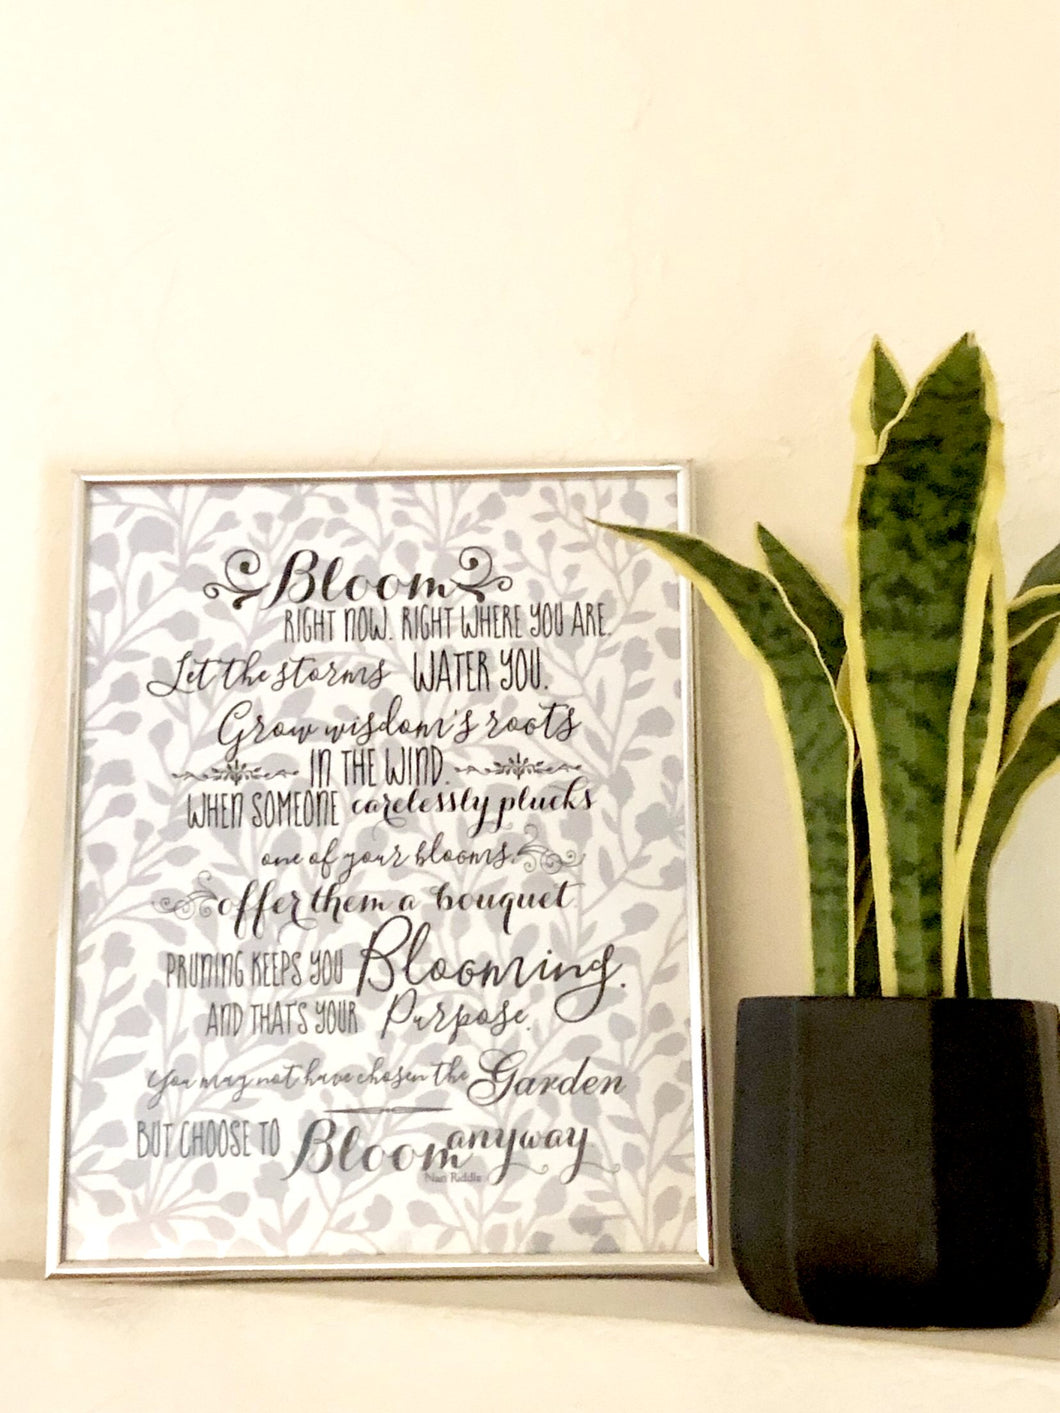 Bloom
RIGHT NOW. RIGHT WHERE YOU ARE.
Let the storms WATER YOU.
Grow wisdom's roots
IN THE WIND.
WHEN SOMEONE carelessly plucks
one of your blooms,
offer them a bouquet.
PRUNING KEEPS YOU Blooming.
AND THAT'S YOUR Purpose.
You may not have chosen the Garden
BUT CHOOSE TO Bloom anyway.
Nan Riddle